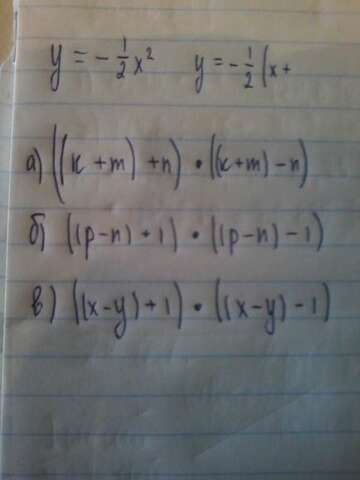 y = -1/2 x² y = -1/2 (x +
а) ((k + m) + n) • ((k+m) - n)
б) ((p-n) + 1) • ((p-n) - 1)
в) ((x-y) + 1) • ((x-y) - 1)